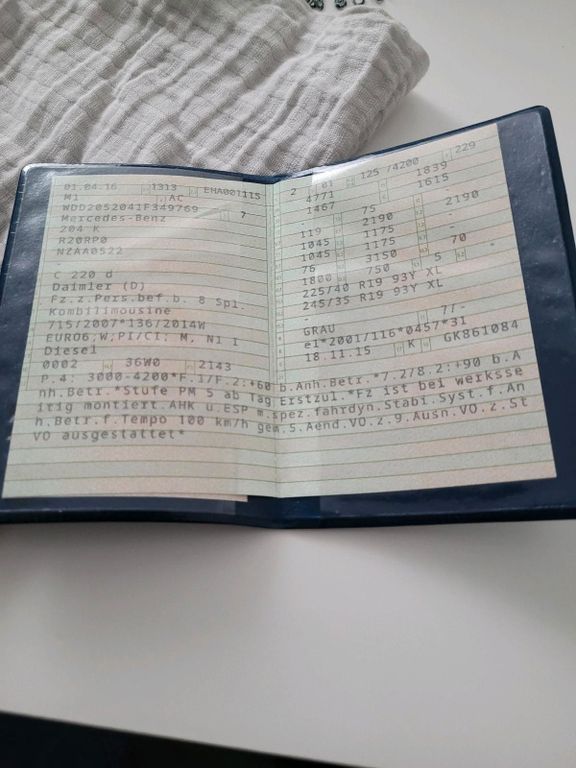 01.04.16 1313 EHA001115
M1 AC
WDD2052041F349769 7
Mercedes-Benz
204 K
R20RP0
NZAA0522
-
C 220 d
Daimler (D)
Fz.z.Pers.bef.b. 8 Spl.
Kombilimousine
715/2007*136/2014W
EURO6;W;PI/CI; M, N1 I
Diesel
0002 36W0 2143
2 01 125 /4200 229
4771 1839
1467 1615
75 -
119 2190 2190
1045 1175 -
1045 1175 -
76 3150 70
1800 750 5 -
225/40 R19 93Y XL
245/35 R19 93Y XL
GRAU 7/-
e1*2001/116*0457*31
18.11.15 K GK861084
P.4: 3000-4200*F.1/F.2:+60 b.Anh.Betr.*7.2/8.2:+90 b.A
nh.Betr.*Stufe PM 5 ab Tag Erstzul.*Fz ist bei werksse
itig montiert.AHK u.ESP m.spez.fahrdyn.Stabi.Syst.f.An
h.Betr.f.Tempo 100 km/h gem.5.Aend.VO.z.9.Ausn.VO.z.St
VO ausgestattet*